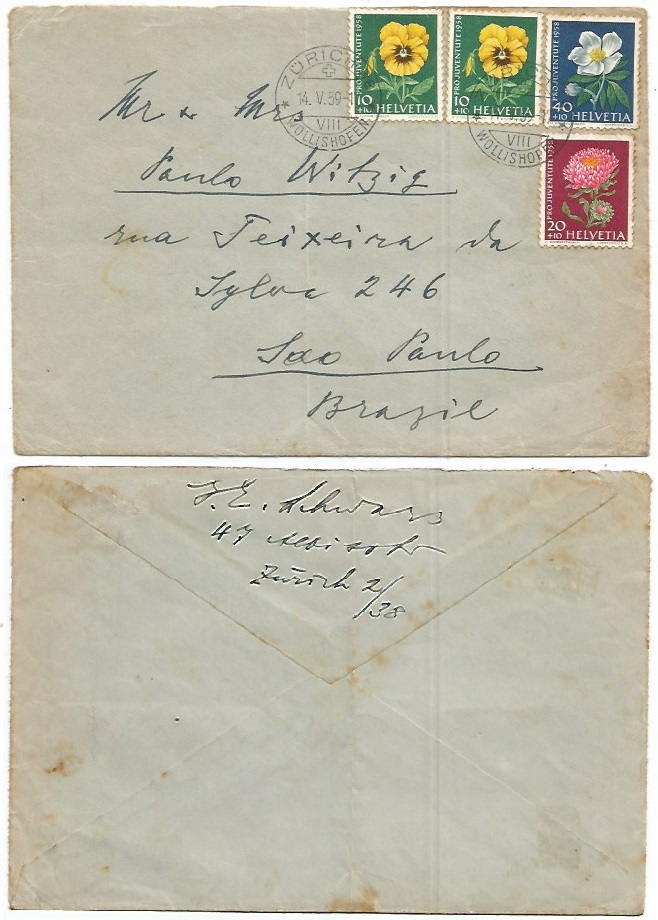 PRO JUVENTUTE 1958
10
+10 HELVETIA
PRO JUVENTUTE 1958
10
+10 HELVETIA
PRO JUVENTUTE 1958
40
+10 HELVETIA
PRO JUVENTUTE 1958
20
+10 HELVETIA
ZÜRICH
14.V.59
VIII
WOLLISHOFEN
VIII
WOLLISHOFEN
Mr & Mrs
Paulo Witzig
rua Teixeira da
Sylva 246
Sao Paulo
Brazil
J. E. Schwarz
47 Albisstr
Zürich 2/38